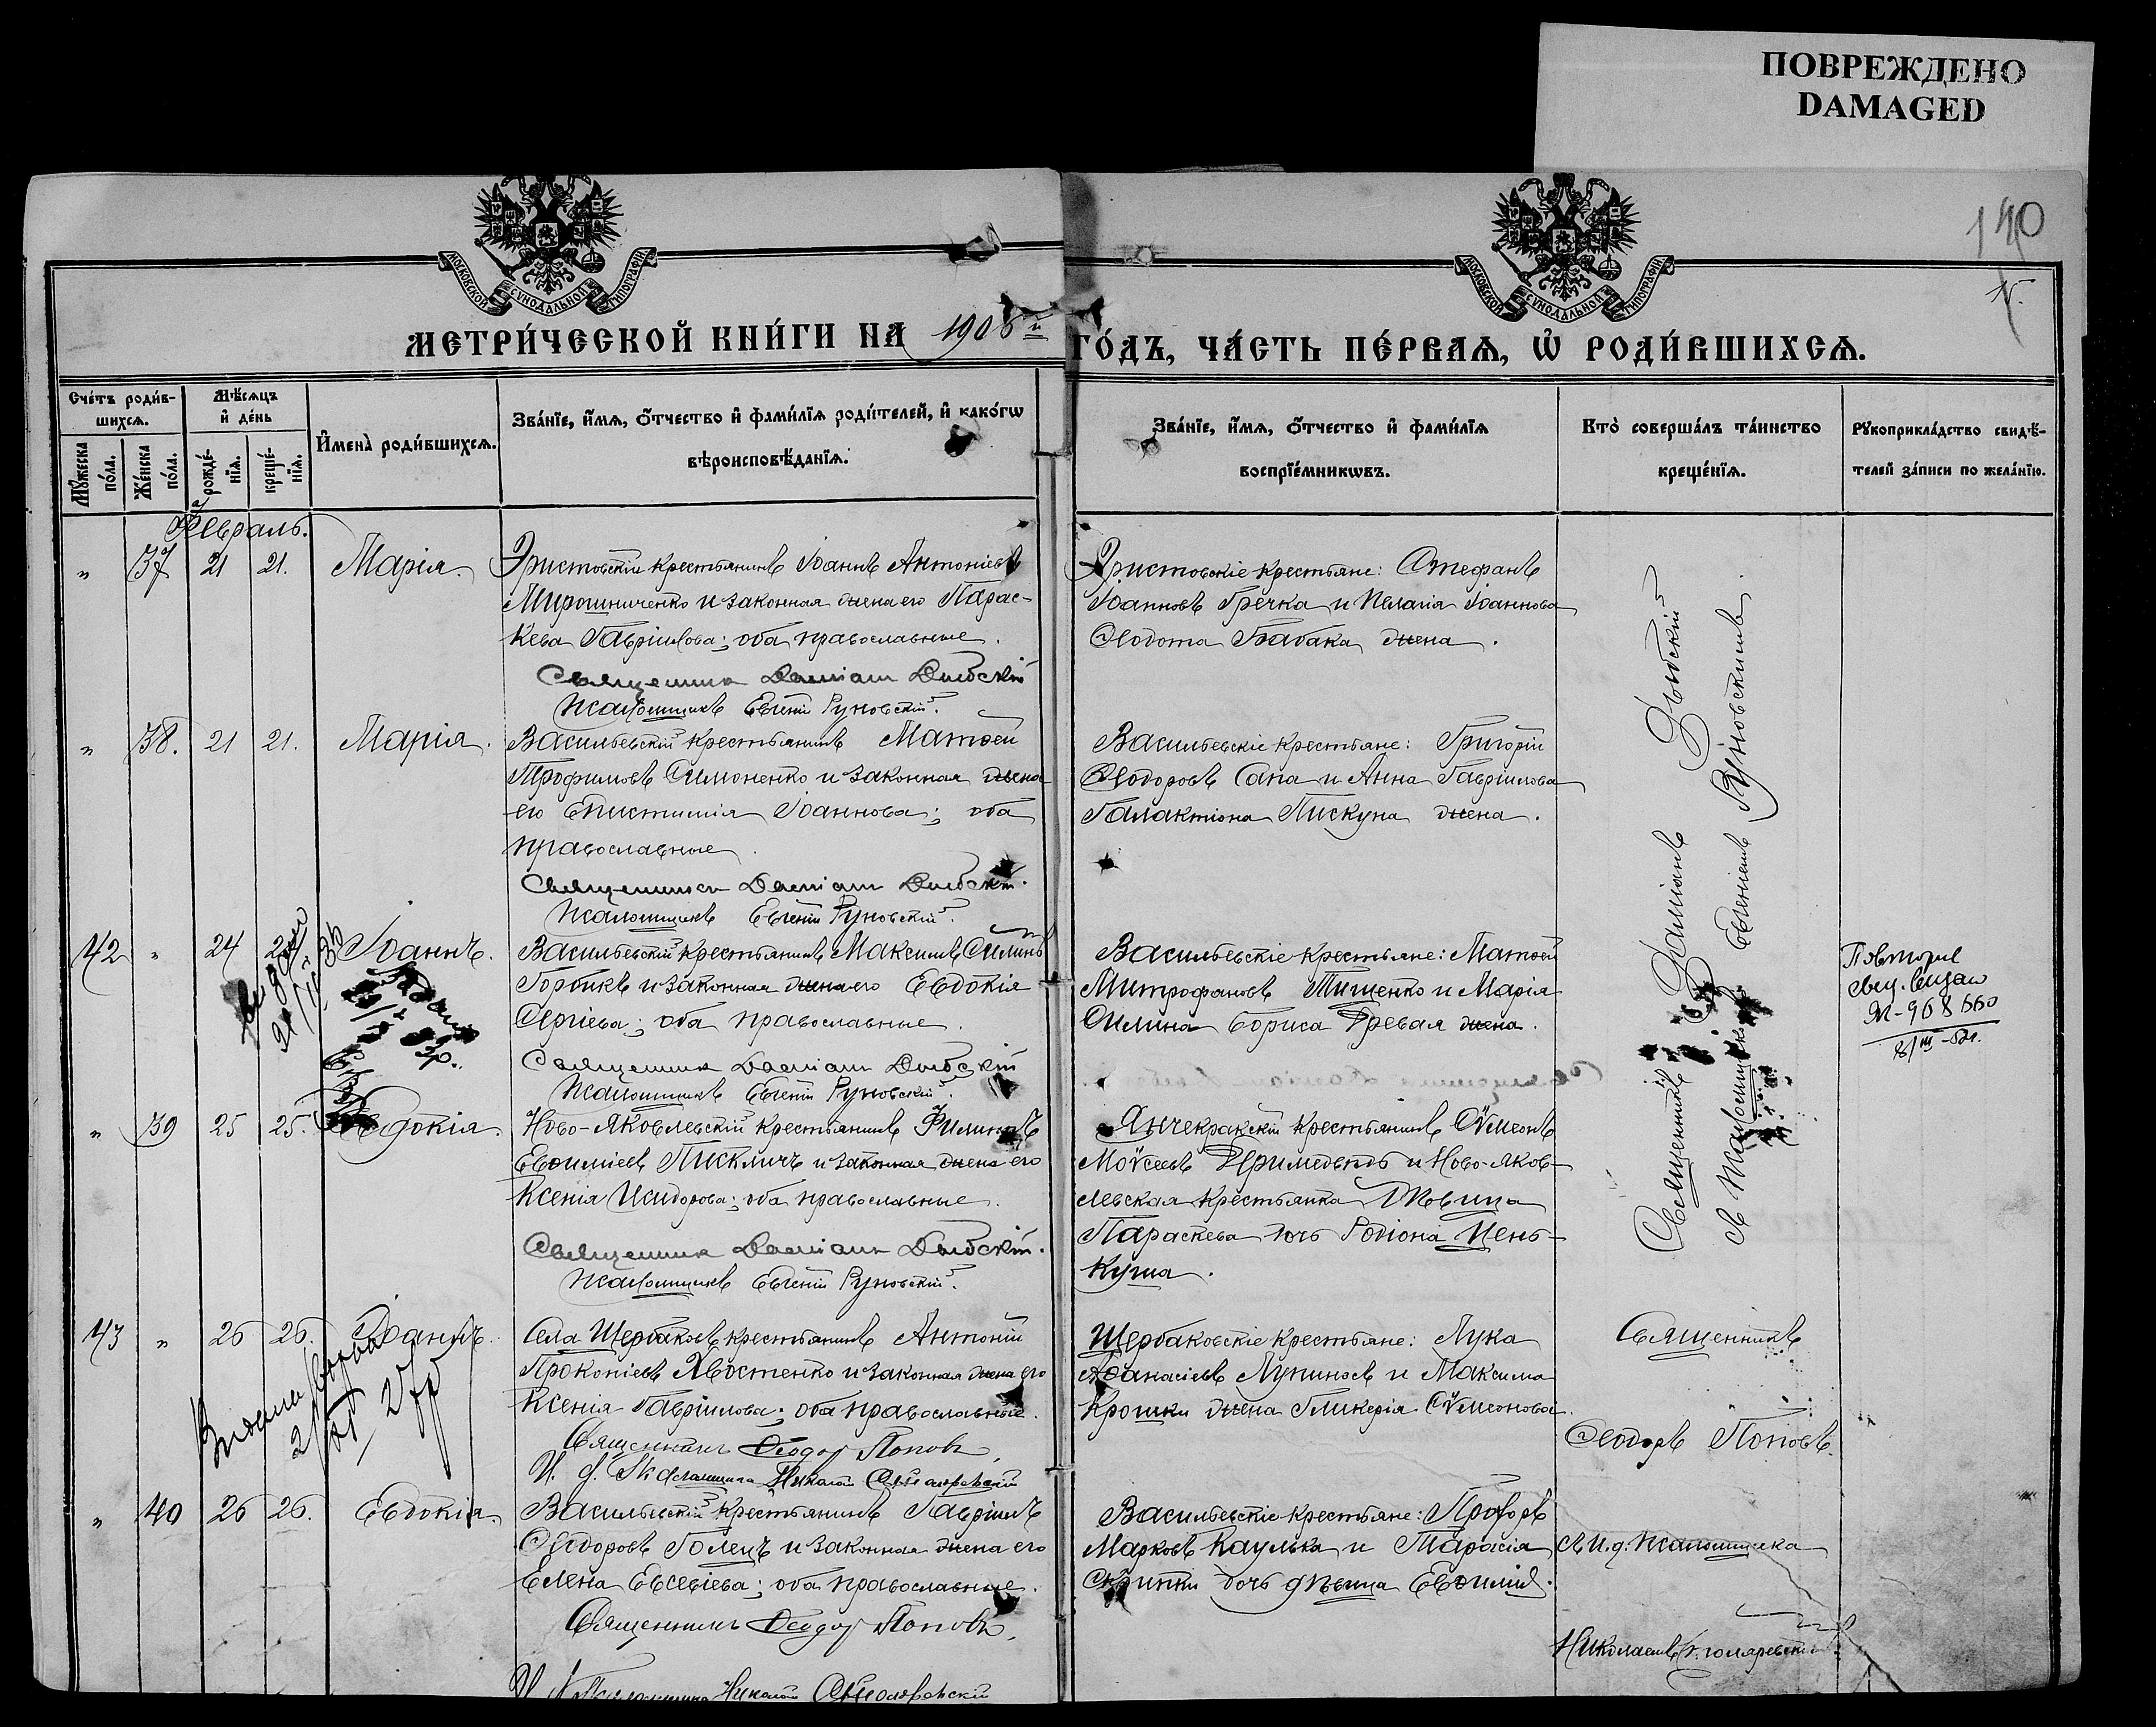 ПОВРЕЖДЕНО
DAMAGED
140
МОСКОВСКОЙ СУНОДАЛЬНОЙ ТИПОГРАФІИ
МОСКОВСКОЙ СУНОДАЛЬНОЙ ТИПОГРАФІИ
МЕТРИ́ЧЕСКОЙ КНИ́ГИ НА 1906й ГО́ДЪ, ЧА́СТЬ ПЕ́РВАѦ, Ѡ РОДИ́ВШИХСѦ.
Сче́тъ роди́в-
шихсѧ.
Мꙋ́жеска по́ла.
Же́нска по́ла.
Мѣ́сѧцъ
и де́нь
рожде́-
нїѧ.
креще́-
нїѧ.
И҆мена̀ роди́вшихсѧ.
Зва́нїе, и҆́мѧ, о҆́тчество и҆ фами́лїѧ роди́телей, и҆ како́гѡ
вѣроисповѣ́данїѧ.
Зва́нїе, и҆́мѧ, о҆́тчество и҆ фами́лїѧ
воспрїе́мникѡвъ.
Кто̀ соверша́лъ та́инство
креще́нїѧ.
Рꙋкоприкла́дство свидѣ́-
телей за́писи по жела́нїю.
Февраль.
" 37 21 21. Марія.
Христовскій крестьянинъ Іоаннъ Антоніевъ
Мирошниченко и законная жена его Парас-
кева Гавріилова; оба православные.
Священникъ Даміанъ Дыбскій
Псаломщикъ Евгеній Руновскій.
Христовскіе крестьяне: Стефанъ
Іоанновъ Гречка и Пелагія Іоаннова
Ѳеодота Бабака жена.
" 38. 21 21. Марія.
Васильевскій крестьянинъ Матѳей
Трофимовъ Симоненко и законная жена
его Епистимія Іоаннова; оба
православные.
Священникъ Даміанъ Дыбскій.
Псаломщикъ Евгеній Руновскій.
Васильевскіе крестьяне: Григорій
Ѳеодоровъ Сапа и Анна Гавріилова
Галактіона Пискуна жена.
42 " 24 24 Іоаннъ.
Васильевскій крестьянинъ Максимъ Силинъ
Горбикъ и законная жена его Евдокія
Сергіева; оба православные.
Священникъ Даміанъ Дыбскій
Псаломщикъ Евгеній Руновскій.
Васильевскіе крестьяне: Матѳей
Митрофановъ Тищенко и Марія
Силина Бориса Гревая жена.
Повторне
свід. видано
968660
" 39 25 25. Евдокія.
Ново-Яковлевскій крестьянинъ Филиппъ
Евѳиміевъ Пискличъ и законная жена его
Ксенія Исидорова; оба православные.
Священникъ Даміанъ Дыбскій.
Псаломщикъ Евгеній Руновскій.
Янчекракскій крестьянинъ Сѵмеонъ
Моѵсеевъ и Ново-Яков-
левская крестьянка дѣвица
Параскева дочь Родіона Цень-
куша.
Священникъ Даміанъ Дыбскій
съ псаломщикомъ Евгеніемъ Руновскимъ
43 " 26 26. Іоаннъ.
Села Щербаковъ крестьянинъ Антоній
Прокопіевъ Хвостенко и законная жена его
Ксенія Гавріилова; оба православные.
Священникъ Ѳеодоръ Поповъ
И. д. Псаломщика Николай
Щербаковскіе крестьяне: Лука
Аѳанасіевъ Лупиносъ и Максима
Крошки жена Гликерія Сѵмеонова.
Священникъ
Ѳеодоръ Поповъ.
" 40 26 26. Евдокія.
Васильевскій крестьянинъ Гавріилъ
Ѳеодоровъ Голецъ и законная жена его
Елена Евсевіева; оба православные.
Священникъ Ѳеодоръ Поповъ.
Николай
Васильевскіе крестьяне: Прохоръ
Марковъ Каулька и Тарасія
Скрипки дочь дѣвица Евѳимія.
съ и. д. псаломщика
Николаемъ